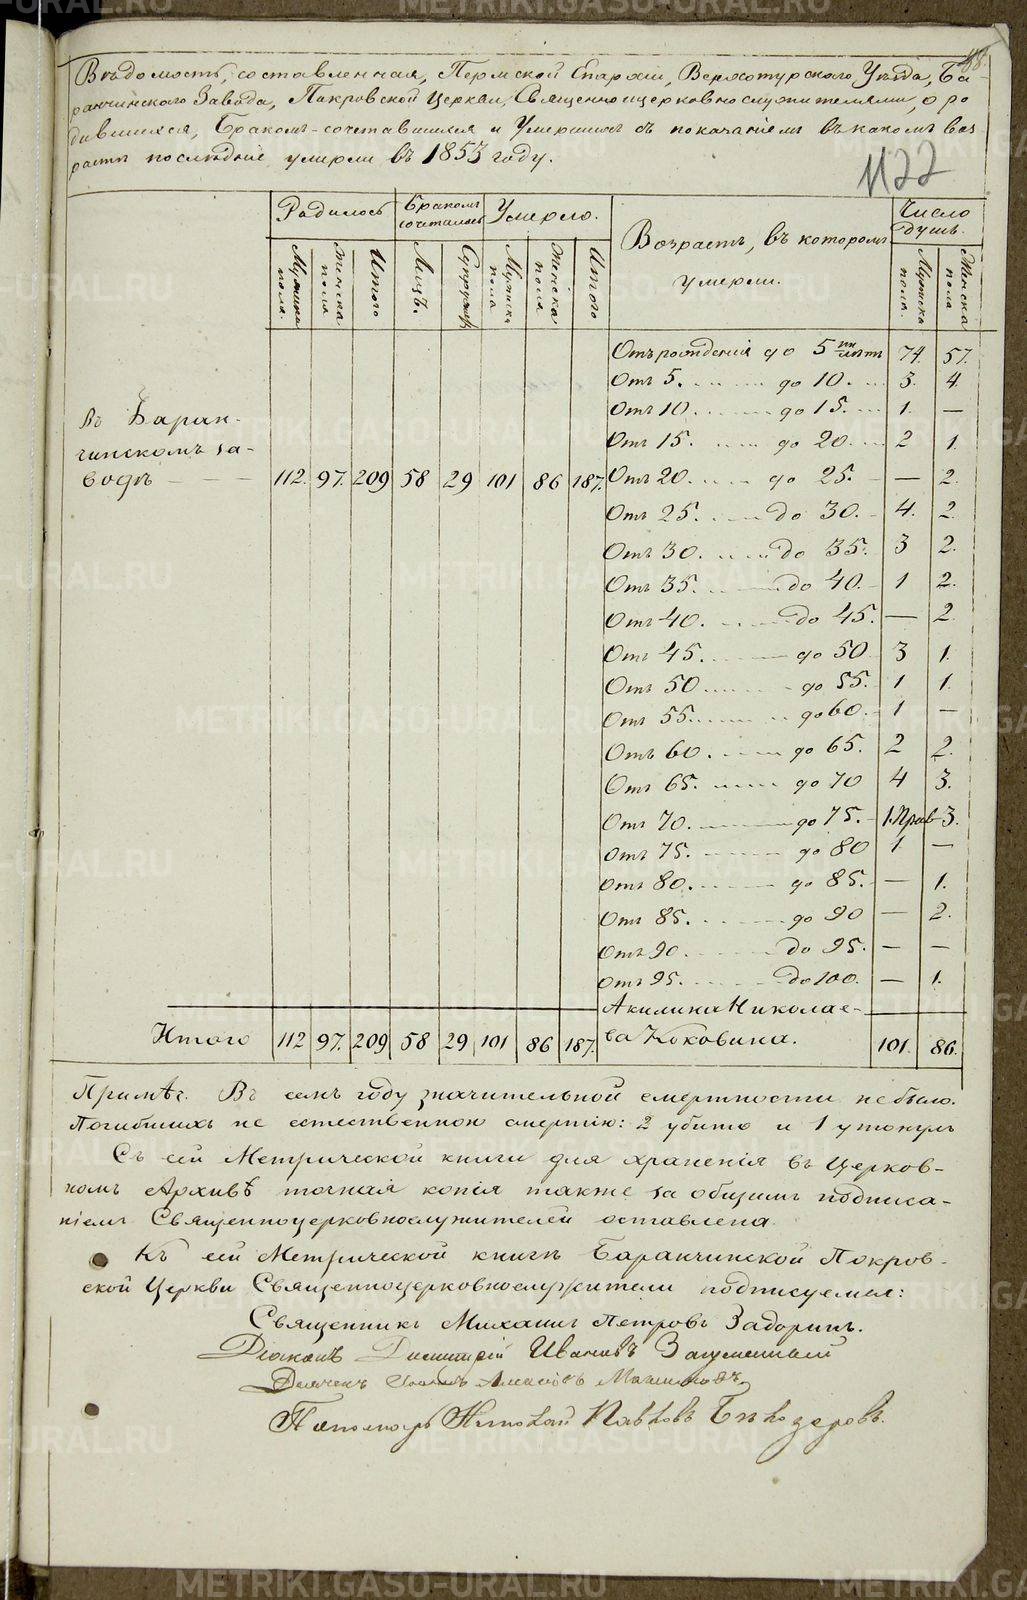 Вѣдомость, составленная, Пермской Епархіи, Верхотурского Уѣзда, Ба-
ранчинского Завода, Покровской Церкви, Священноцерковнослужителями, о ро
дившихся, Бракомъ-сочетавшихся и Умершихъ съ показаніемъ въ какомъ воз
растѣ послѣдніе умерли въ 1853 году.
1122
Родилось
Бракомъ сочеталось
Умерло.
Возрастъ, въ которомъ умерли.
Число душъ.
Мужска пола.
Женска пола
Итого
Лицъ.
Супружес
Мужска пола
Женска пола
Итого
Мужска пола.
Женска пола
Отъ рожденія до 5 ти лѣтъ 74. 57.
Отъ 5. до 10. 3. 4.
Отъ 10. до 15. 1. —
Отъ 15. до 20. 2 1.
Въ Баран-
чинскомъ за-
водѣ — — — 112. 97. 209 58 29 101 86 187. Отъ 20. до 25. — 2.
Отъ 25. до 30. 4. 2.
Отъ 30. до 35. 3 2.
Отъ 35. до 40. 1 2.
Отъ 40. до 45. — 2.
Отъ 45. до 50 3 1.
Отъ 50 до 55. 1 1.
Отъ 55. до 60. 1 —
Отъ 60. до 65. 2 2.
Отъ 65. до 70 4 3.
Отъ 70. до 75. 1. Прав 3.
Отъ 75. до 80 1 —
Отъ 80. до 85. — 1.
Отъ 85. до 90 — 2.
Отъ 90. до 95. — —
Отъ 95. до 100. — 1.
Акилина Николае-
ва Коковина.
Итого 112 97. 209 58 29 101 86 187. 101. 86.
Примѣч. Въ семъ году значительной смертности не было.
Погибшихъ не естественною смертію: 2 убито и 1 утонулъ
Съ сей Метрической книги для храненія въ Церков-
номъ Архивѣ точная копія также за общимъ подписа-
ніемъ Священноцерковнослужителей оставлена
Къ сей Метрической книгѣ Баранчинской Покров-
ской Церкви Священноцерковнослужители подписуемся:
Священникъ Михаилъ Петровъ Задоринъ.
Діаконъ Димитрій Ивановъ
Дьячекъ
Пономарь Николай Павловъ Бѣлозеровъ.
METRIKI.GASO-URAL.RU